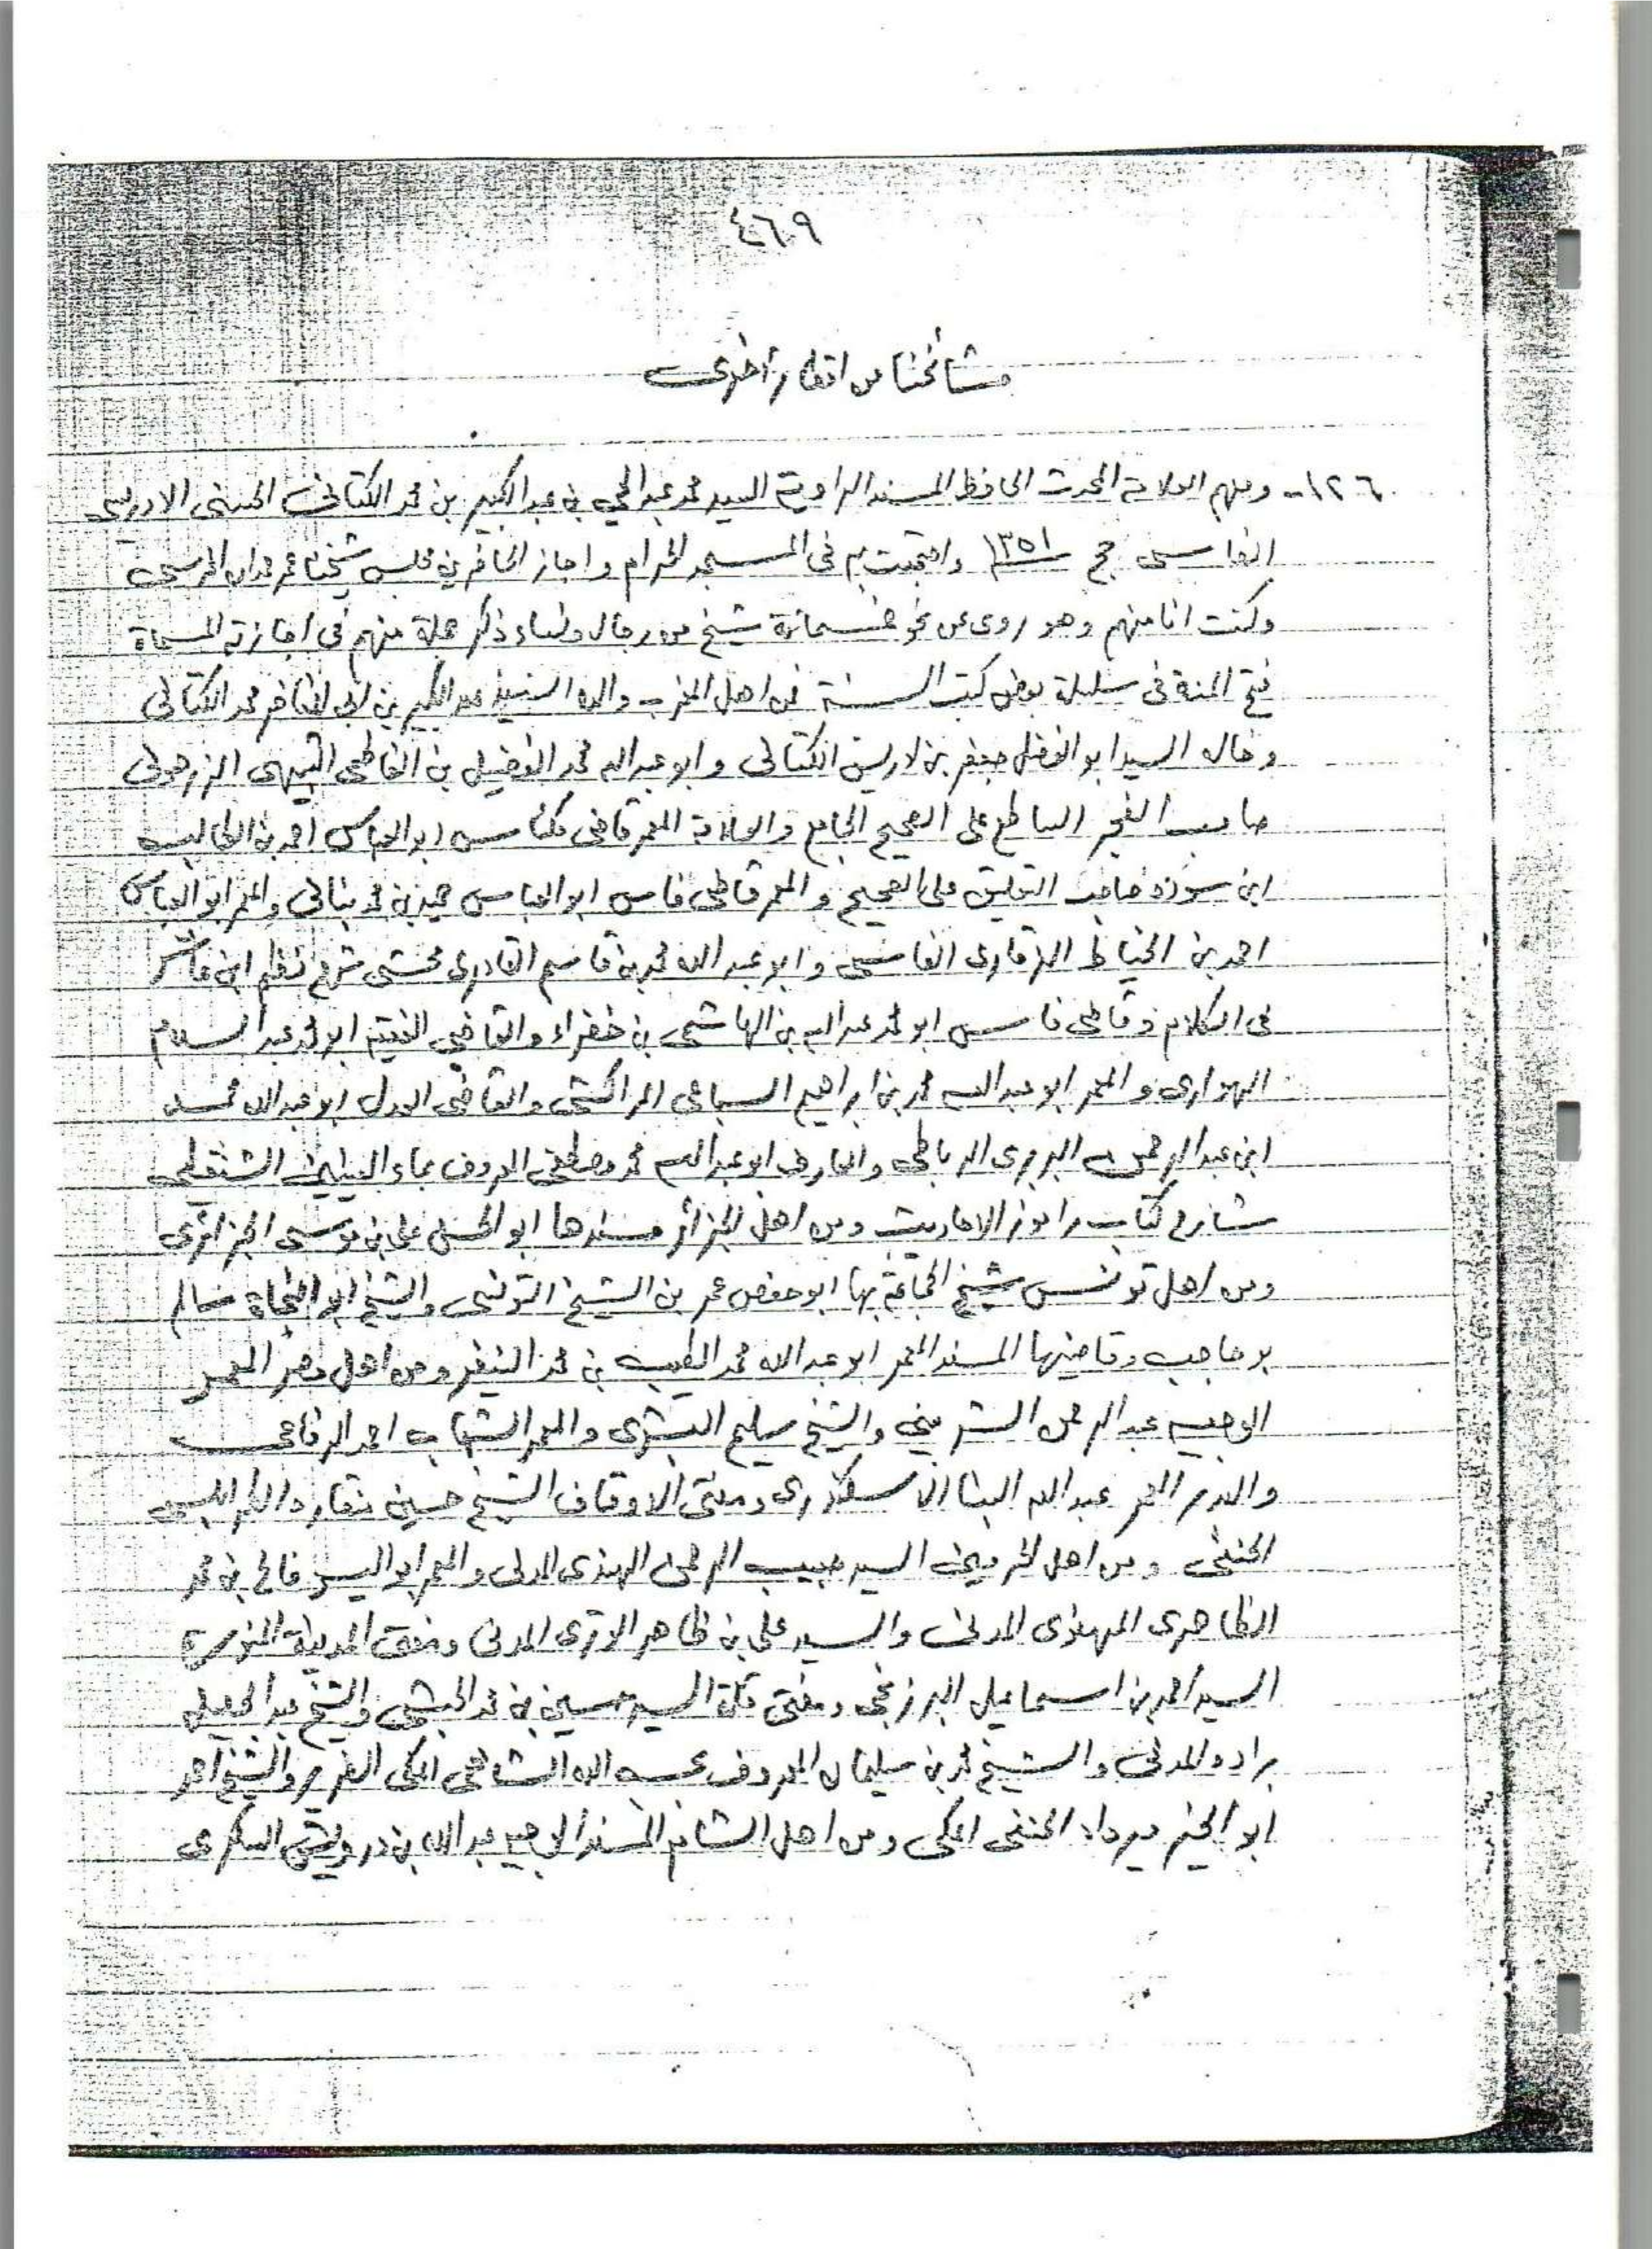 ٤٦٩
مشائخنا من اقطار أخرى
١٢٦- ومنهم العلامة المحدث الحافظ المسند الراوية السيد محمد عبد الحي بن عبد الكبير بن محمد الكتاني الحسني الادريسي
الفاسي حج ١٣٥١ واجتمعت به في المسجد الحرام واجاز الحاضرين مجلس شيخنا عمر حمدان المحرسي
وكنت انا منهم وهو روى عن نحو خمسمائة شيخ من رجال ونساء ذكر جملة منهم في اجازته المسماة
فتح المنة في سلسلة بعض كتب السنة فمن اهل المغرب والده السيد عبد الكبير بن ابي المفاخر محمد الكتاني
وخاله السيد ابو الفضل جعفر بن ادريس الكتاني وابو عبد الله محمد الفضيل بن الفاطمي الشبيهي الزرهوني
صاحب الفجر الساطع على الصحيح الجامع والعلامة المعمر قاضي مكناس ابو العباس احمد بن الطالب
ابن سودة صاحب التعليق على الصحيح و المعمر قاضي فاس ابو العباس حميد بن محمد بناني والمعمر ابو العباس
احمد بن الخياط الزقاري الفاسي وابو عبد الله محمد بن قاسم القادري محشي شرح نظم ابن عاشر
في الكلام وقاضي فاس ابو محمد عبد الله بن الهاشمي بن خضراء والقاضي الفقيه ابو محمد عبد السلام
الهواري و المعمر ابو عبد الله محمد بن ابراهيم السباعي المراكشي والقاضي العدل ابو عبد الله محمد
ابن عبد الرحمن البريري الرباطي والعارف ابو عبد الله محمد مصطفى المعروف بماء العينين الشنقيطي
شارح كتاب راموز الاحاديث ومن اهل الجزائر مسندها ابو الحسن علي بن موسى الجزائري
ومن اهل تونس شيخ الجماعة بها ابو حفص عمر بن الشيخ التونسي والشيخ ابو النجاة سالم
بو حاجب وقاضيها المسند المعمر ابو عبد الله محمد الطيب بن محمد النيفر ومن اهل مصر المعمر
الوجيه عبد الرحمن الشربيني والشيخ سليم البشري والمعمر الشهاب احمد الرفاعي
والمعمر عبد الله البنا الاسكندري ومفتي الاوقاف الشيخ حسين منقاره الطرابلسي
الحنفي ومن اهل الحرمين السيد حبيب الرحمن الهندي المدني والمعمر ابو اليسر فالح بن محمد
الظاهري المهنوي المدني والسيد علي بن ظاهر الوتري المدني ومفتي المدينة المنورة
السيد احمد بن اسماعيل البرزنجي ومفتي مكة السيد حسين بن محمد الحبشي والشيخ عبد الجليل
براده المدني والشيخ محمد بن سليمان المعروف بحسب الله الشافعي المكي الضرير والشيخ احمد
ابو الخير مرداد الحنفي المكي ومن اهل الشام المسند الوجيه عبد الله بن درويش السكري